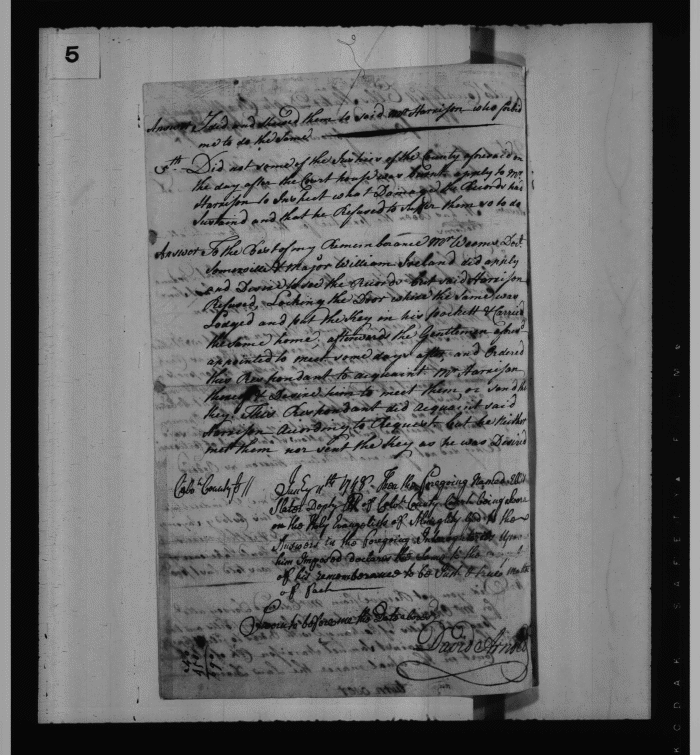 5
Answer I did and shewed them to said Mr Harrison who forbid
me to do the Same
5th Did not some of the Justices of the County aforesaid on
the day after the Court house was burnt apply to Mr
Harrison to Inspect what Damage the Records had
Sustaind and that he Refused to Suffer them so to do
Answer To the Best of my Remembrance Mr Weems, Doct.
Somervill & Major William Ireland did apply
and Desire to see the Records but said Harrison
Refused, Locking the Door where the Same was
Lodged and put the Key in his pockett & Carried
the same home, afterwards the Gentlemen afsd
appointed to meet some days after and Ordered
this Respondant to acquaint Mr Harrison
thereof & Desire him to meet them or send the
Key, This Respondant did acquaint said
Harrison According to Request but he Neither
mett them nor sent the Key as he was Desired
County 1748 the foregoing Named
Slator Depty of County Court being
on the Holy Evangelists of Almighty God
Answers to the foregoing
him declares the Same to the
of his remembrance to be Just & true
of Fact
Sworn to before me the Date above
David Arnold
Turn over
KODAK